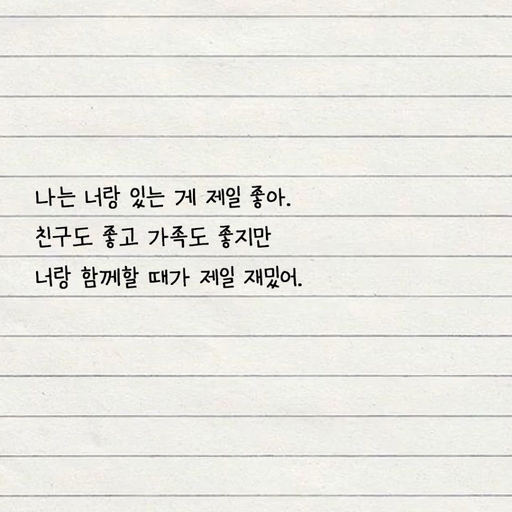 나는 너랑 있는 게 제일 좋아.
친구도 좋고 가족도 좋지만
너랑 함께할 때가 제일 재밌어.